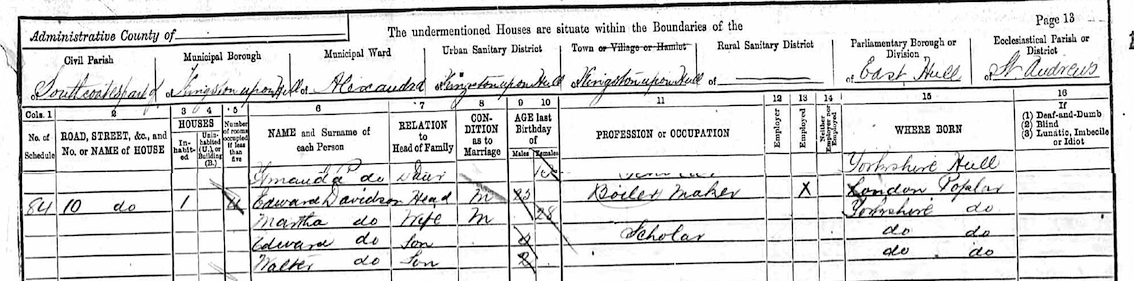 Administrative County of
The undermentioned Houses are situate within the Boundaries of the
Page 13
Civil Parish
Municipal Borough
Municipal Ward
Urban Sanitary District
Town or Village or Hamlet
Rural Sanitary District
Parliamentary Borough or Division
Ecclesiastical Parish or District
of Southcoates part of
of Kingston upon Hull
of Alexandra
of Kingston upon Hull
of Kingston upon Hull
of
of East Hull
of St Andrews
Cols. 1 2 3 4 5 6 7 8 9 10 11 12 13 14 15 16
No. of Schedule
ROAD, STREET, &c., and No. or NAME of HOUSE
HOUSES
Inhabited
Uninhabited (U.), or Building (B.)
Number of rooms occupied if less than five
NAME and Surname of each Person
RELATION to Head of Family
CONDITION as to Marriage
AGE last Birthday of
Males
Females
PROFESSION or OCCUPATION
Employer
Employed
Neither Employer nor Employed
WHERE BORN
If
(1) Deaf-and-Dumb
(2) Blind
(3) Lunatic, Imbecile or Idiot
Amanda P do Daur Yorkshire Hull
84 10 do 1 4 Edward Davidson Head M Boiler Maker X London Poplar
Martha do Wife M 28 Yorkshire do
Edward do Son Scholar do do
Walter do Son 2 do do